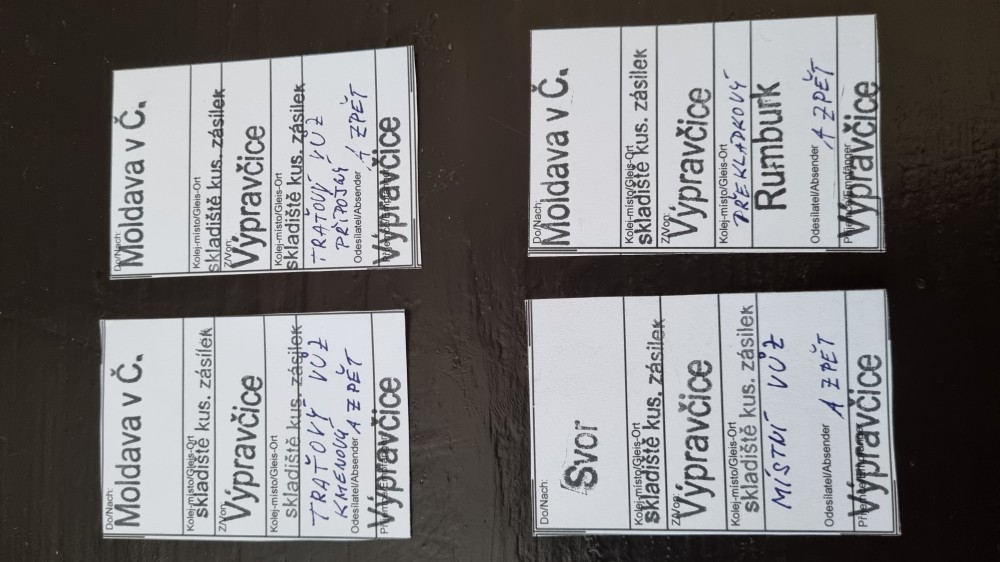 Do/Nach:
Moldava v Č.
Kolej-místo/Gleis-Ort
skladiště kus. zásilek
Z/Von:
Výpravčice
Kolej-místo/Gleis-Ort
skladiště kus. zásilek
TRAŤOVÝ VŮZ
KMENOVÝ
Odesílatel/Absender A ZPĚT
Výpravčice
Do/Nach:
Moldava v Č.
Kolej-místo/Gleis-Ort
skladiště kus. zásilek
Z/Von:
Výpravčice
Kolej-místo/Gleis-Ort
skladiště kus. zásilek
TRAŤOVÝ VŮZ
PŘÍPOJNÝ
Odesílatel/Absender A ZPĚT
Výpravčice
Do/Nach:
Svor
Kolej-místo/Gleis-Ort
skladiště kus. zásilek
Z/Von:
Výpravčice
Kolej-místo/Gleis-Ort
skladiště kus. zásilek
MÍSTNÍ VŮZ
Odesílatel/Absender A ZPĚT
Výpravčice
Do/Nach:
Moldava v Č.
Kolej-místo/Gleis-Ort
skladiště kus. zásilek
Z/Von:
Výpravčice
Kolej-místo/Gleis-Ort
PŘEKLADKOVÝ
Rumburk
Odesílatel/Absender A ZPĚT
Výpravčice